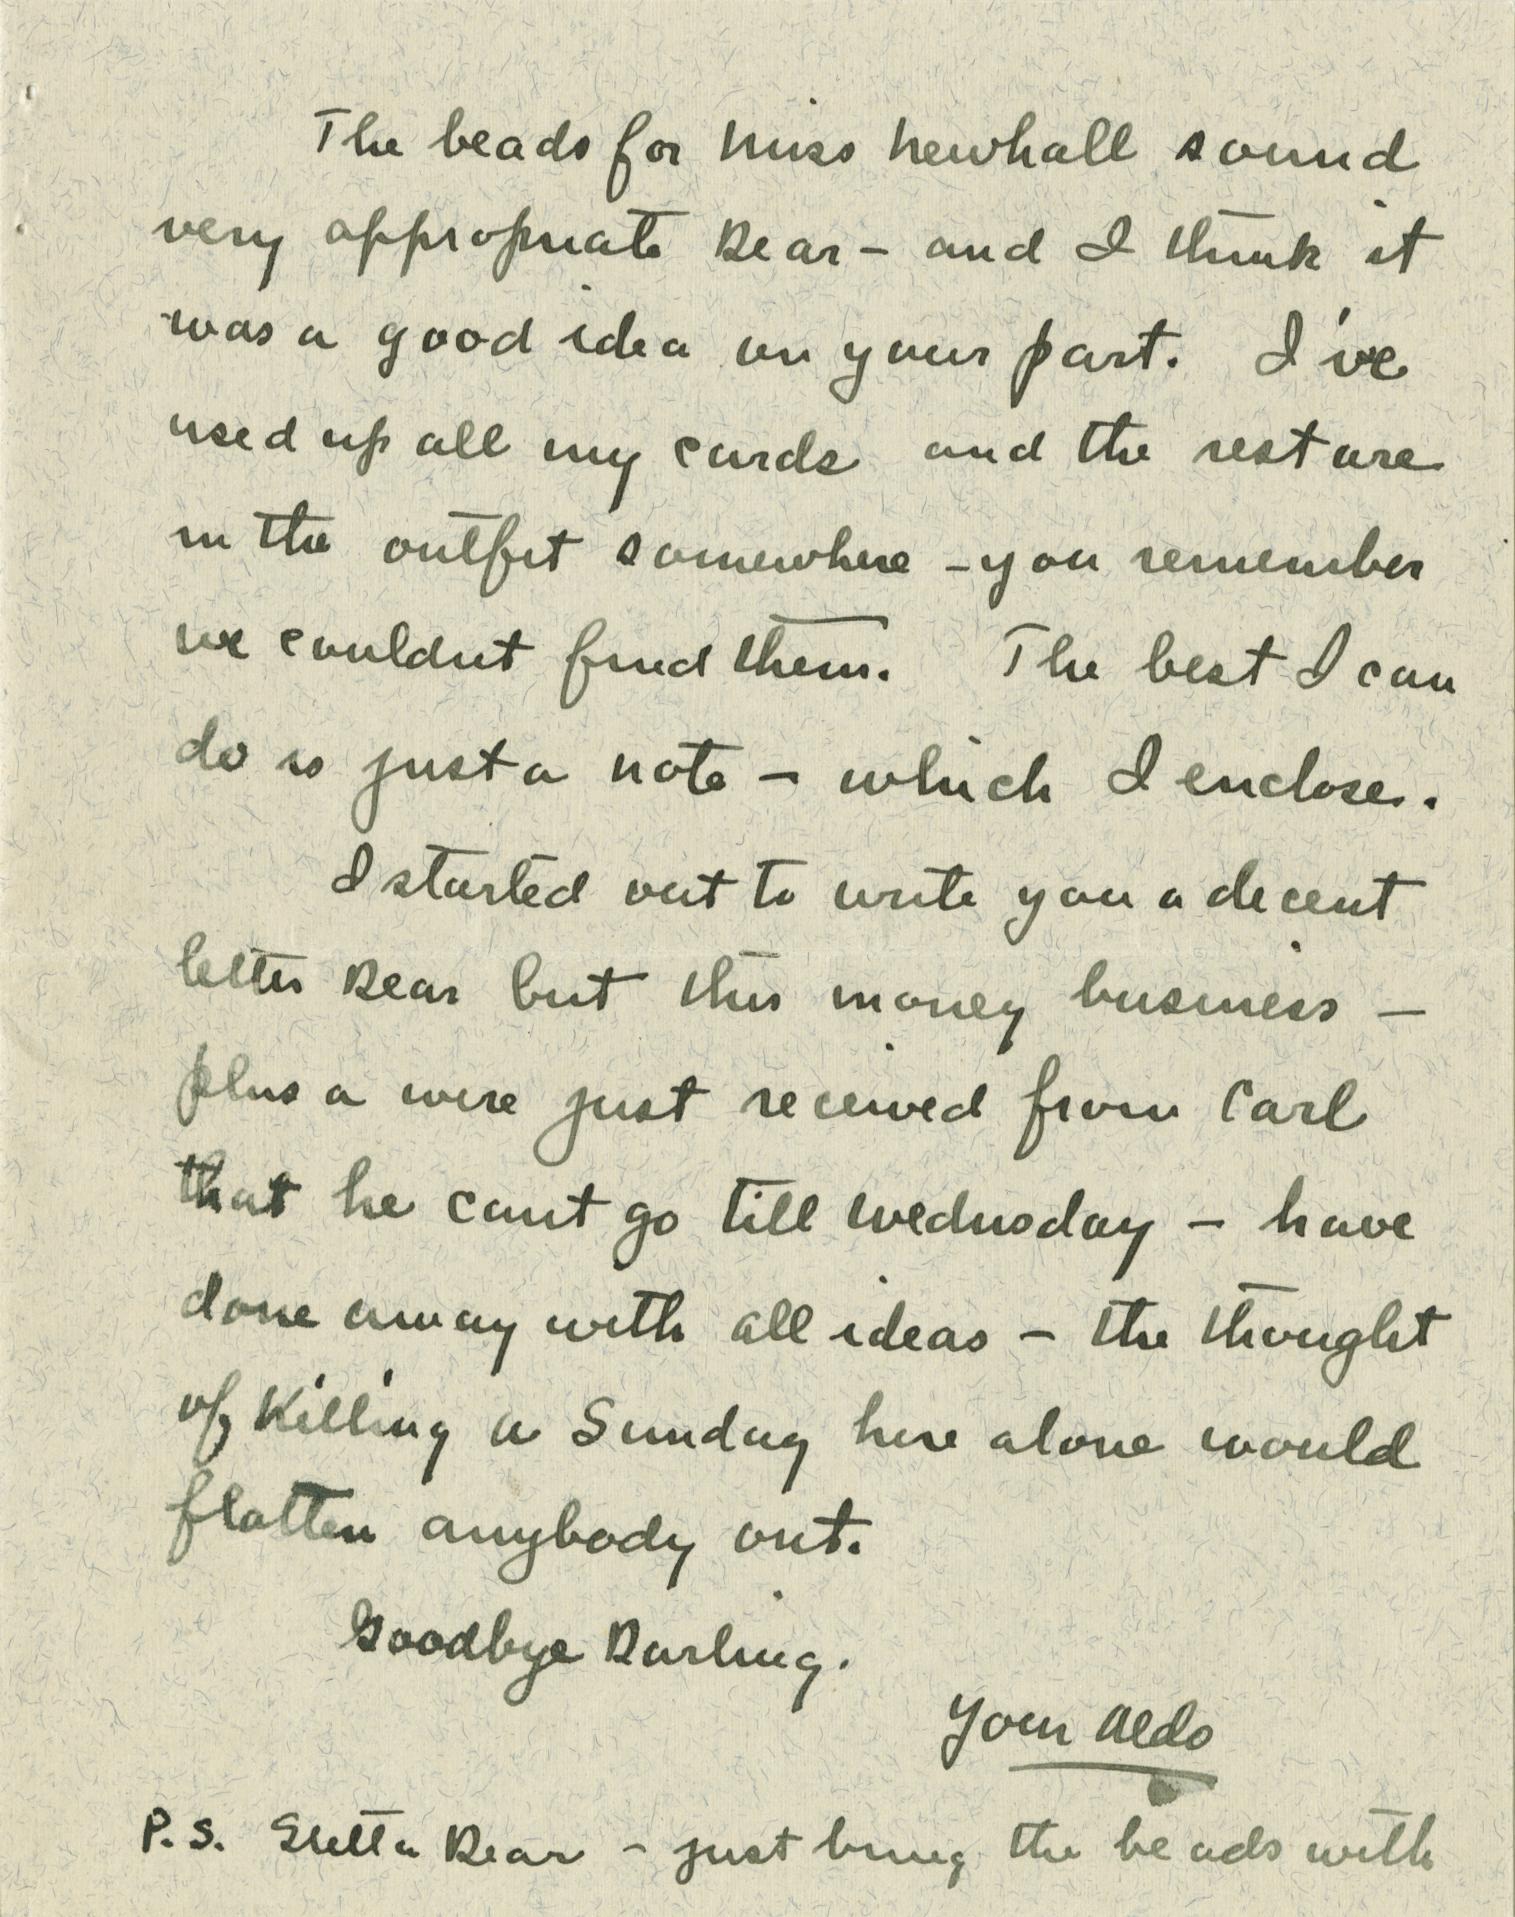 The beads for Miss Newhall sound
very appropriate Dear - and I think it
was a good idea on your part. I've
used up all my cards and the rest are
in the outfit somewhere - you remember
we couldnt find them. The best I can
do is just a note - which I enclose.
I started out to write you a decent
letter Dear but this money business -
plus a wire just received from Carl
that he cant go till Wednesday - have
done away with all ideas - the thought
of Killing a Sunday here alone would
flatten anybody out.
Goodbye Darling.
Your Aldo
P.S. Stella Dear - just bring the beads with